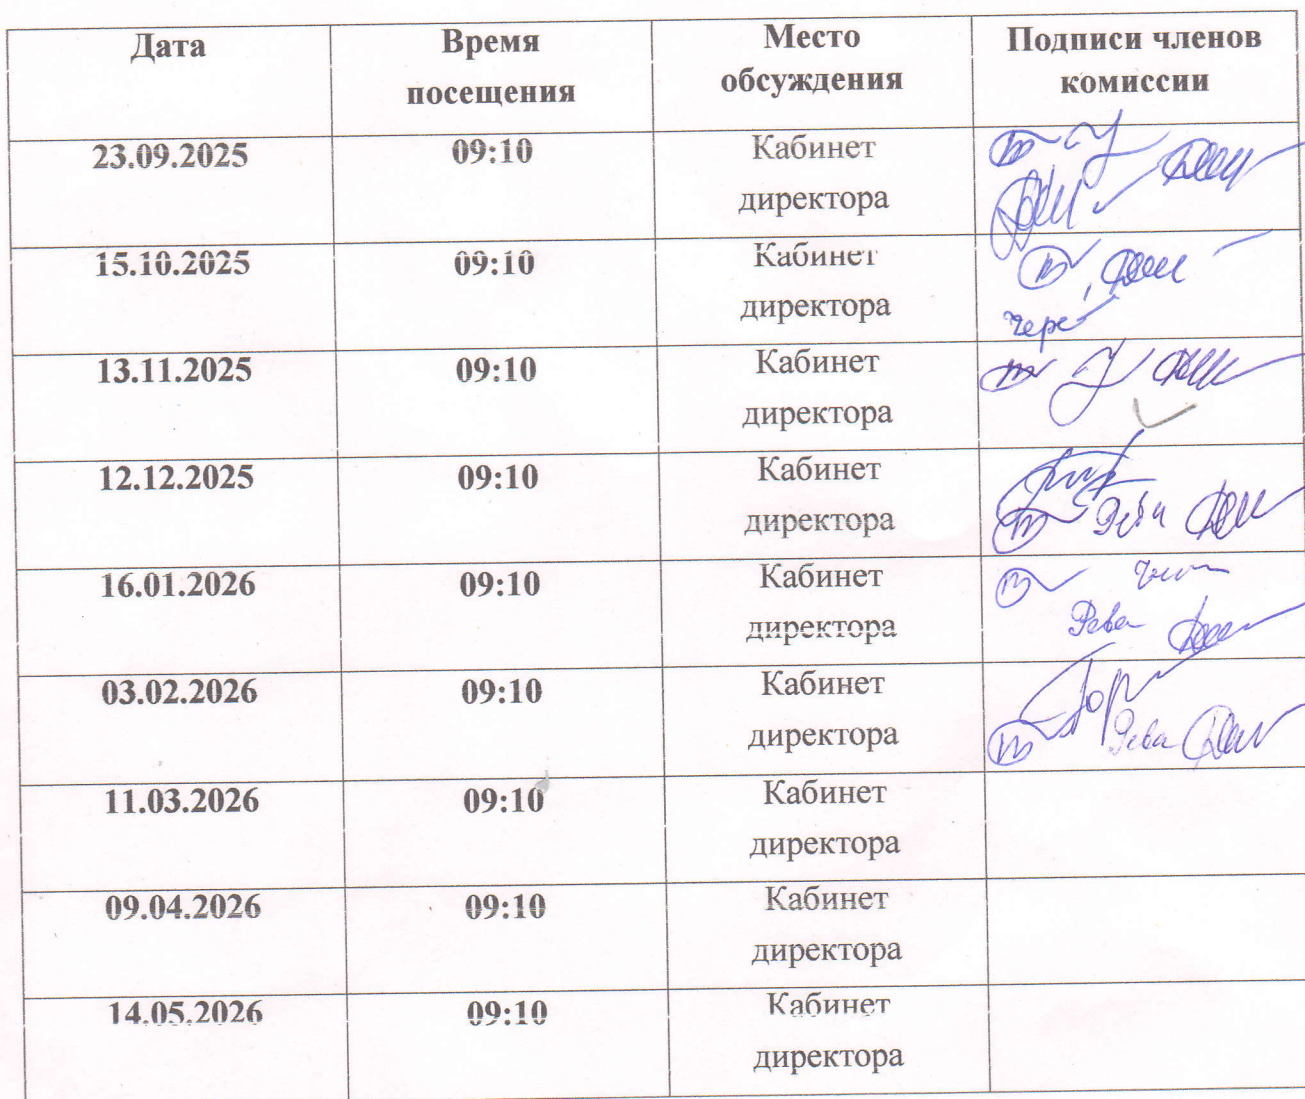 Дата Время посещения Место обсуждения Подписи членов комиссии
23.09.2025 09:10 Кабинет
директора
15.10.2025 09:10 Кабинет
директора
13.11.2025 09:10 Кабинет
директора
12.12.2025 09:10 Кабинет
директора
16.01.2026 09:10 Кабинет
директора
Рева
03.02.2026 09:10 Кабинет
директора
Рева
11.03.2026 09:10 Кабинет
директора
09.04.2026 09:10 Кабинет
директора
14.05.2026 09:10 Кабинет
директора